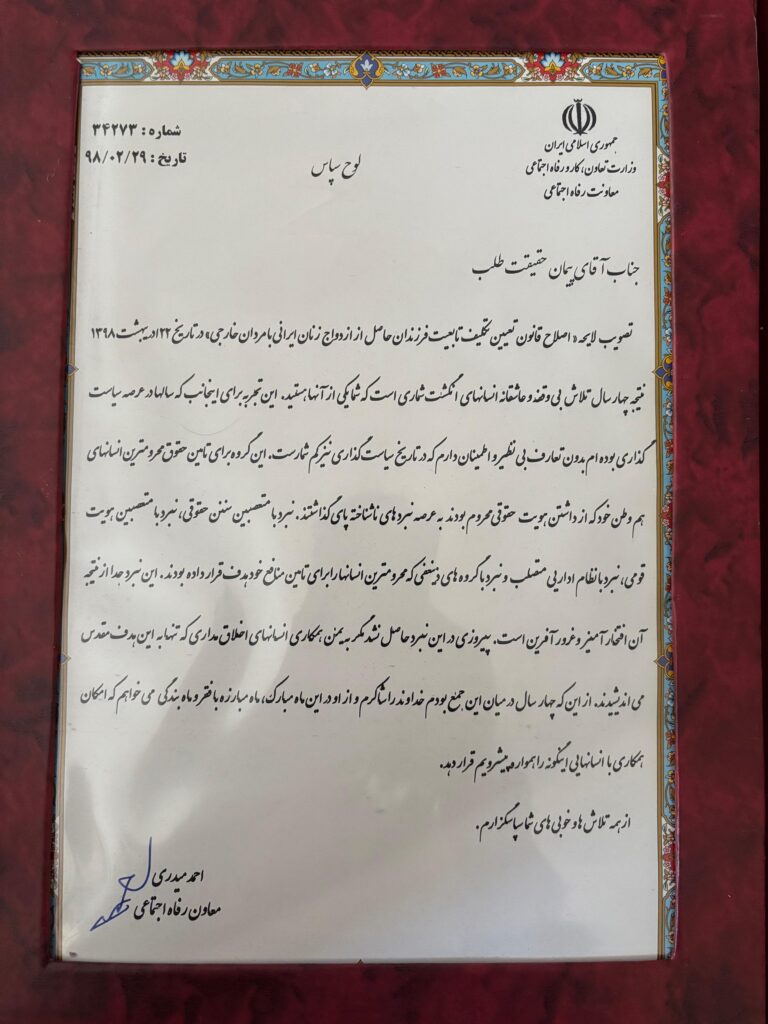 جمهوری اسلامی ایران
وزارت تعاون، کار و رفاه اجتماعی
معاونت رفاه اجتماعی
شماره : ۳۴۲۷۳
تاریخ : ۹۸/۰۲/۲۹
لوح سپاس
جناب آقای پیمان حقیقت طلب
تصویب لایحه « اصلاح قانون تعیین تکلیف تابعیت فرزندان حاصل از ازدواج زنان ایرانی با مردان خارجی» در تاریخ ۲۲اردیبهشت ۱۳۹۸
نتیجه چهار سال تلاش بی وقفه و عاشقانه انسانهای انگشت شماری است که شما یکی از آنها هستید. این تجربه برای اینجانب که سالها در عرصه سیاست
گذاری بوده ام بدون تعارف بی نظیر و اطمینان دارم که در تاریخ سیاست گذاری نیز کم شمارست. این گروه برای تامین حقوق محروم ترین انسانهای
هم وطن خود که از داشتن هویت حقوقی محروم بودند به عرصه نبردهای ناشناخته پای گذاشتند. نبرد با متعصبین سنن حقوقی، نبرد با متعصبین هویت
قومی، نبرد با نظام اداریی متصلب و نبرد با گروه های ذینفعی که محروم ترین انسانها را برای تامین منافع خود هدف قرار داده بودند. این نبرد جدا از نتیجه
آن افتخار آمیز و غرور آفرین است. پیروزی در این نبرد حاصل نشد مگر به یمن همکاری انسانهای اخلاق مداری که تنها به این هدف مقدس
می اندیشیدند. از این که چهار سال در میان این جمع بودم خداوند را شاکرم و از او در این ماه مبارک، ماه مبارزه با فقر و ماه بندگی می خواهم که امکان
همکاری با انسانهایی اینگونه را همواره پیشرویم قرار دهد.
از همه تلاش ها و خوبی های شما سپاسگزارم.
احمد میدری
معاون رفاه اجتماعی